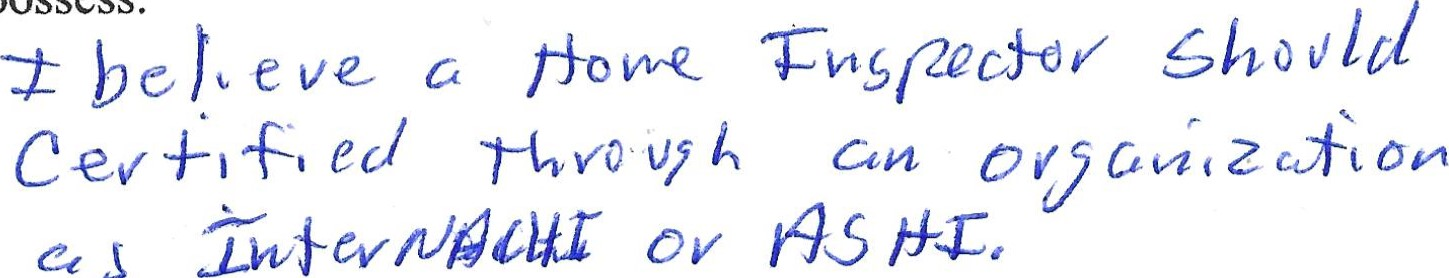 possess.
I believe a Home Inspector should
Certified through an organization
as InterNACHI or ASHI.